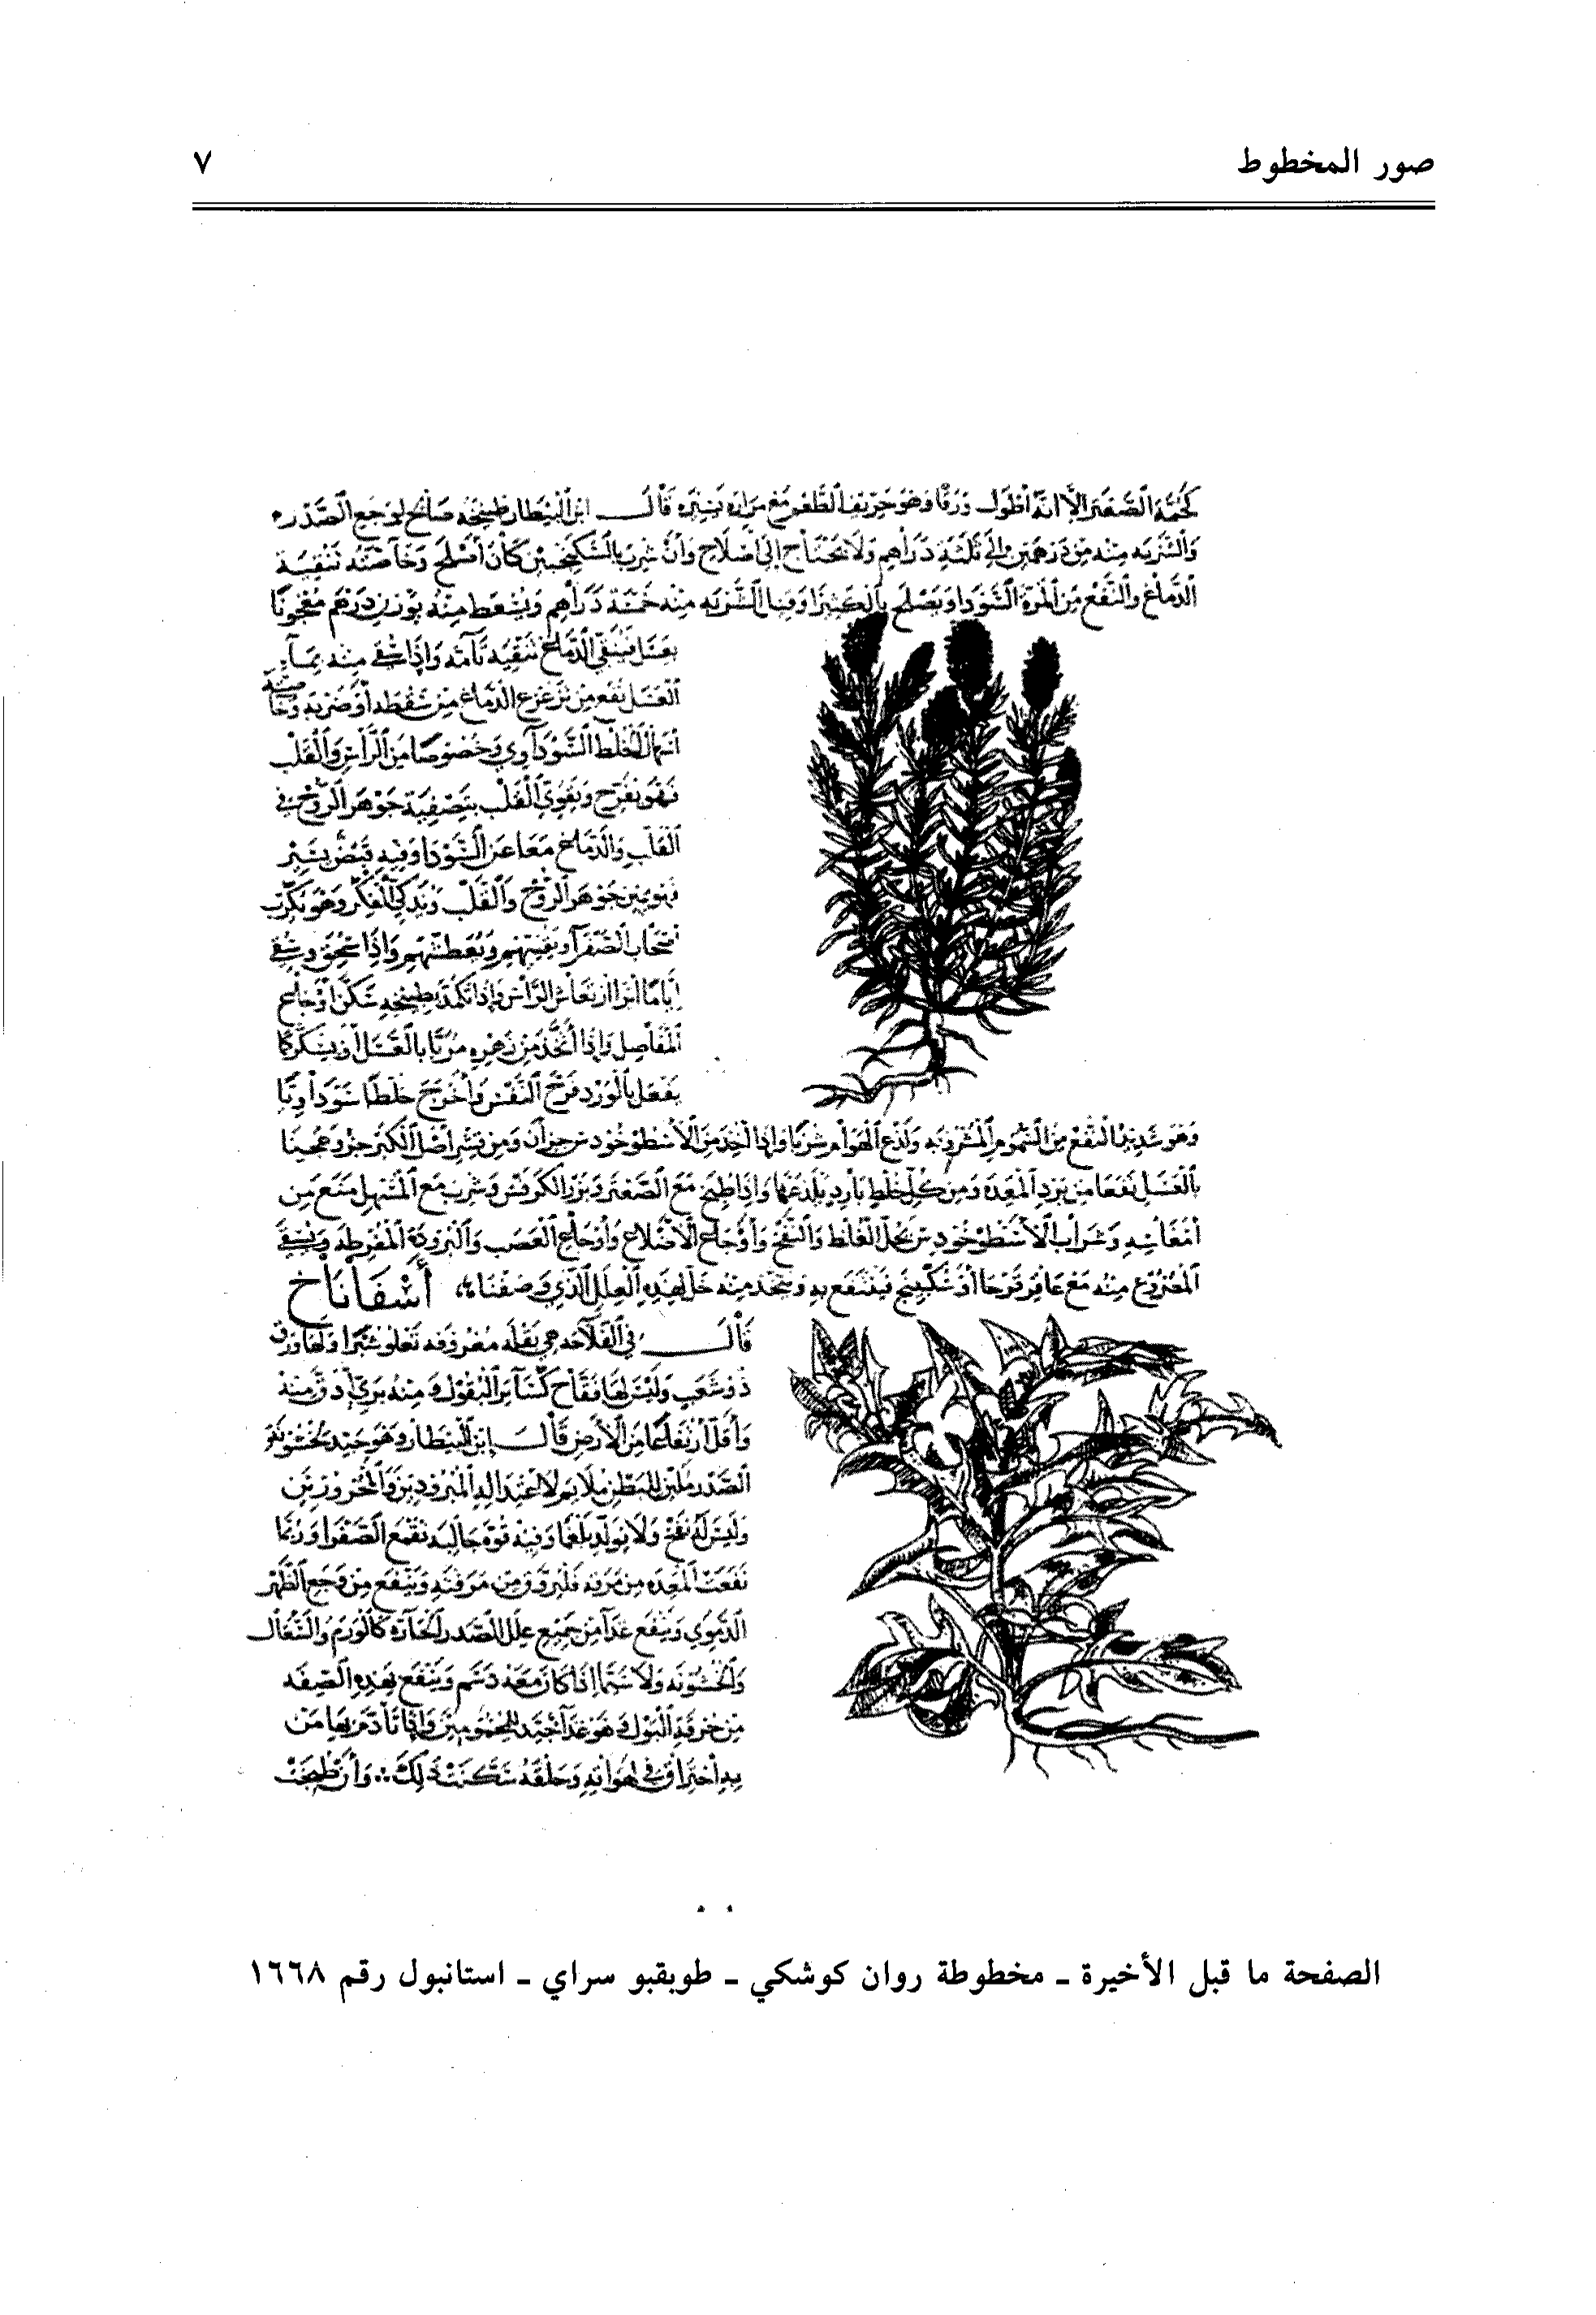 صور المخطوط
٧
كجمة الصعتر إلا انه أطول ورقا وهو حريف الطعم مع مرارة يسيره قال ابن البيطار طبيخه صالح لوجع الصدر
والشربه منه من درهمين إلى ثلثة دراهم ولا يحتاج إلى اصلاح وان شرب بالسكنجبين كان أصلح وخاصته تنقية
الدماغ والنفع من المرة السودا ويصلح بالكثيرا وقيل الشربه منه خمسة دراهم ويسعط منه بوزن درهم معجونا
بعسل فينقي الدماغ تنقيه تآمه واذا سقي منه بمآء
العسل نفع من تزعزع الدماغ من سقطه أو ضربه وخاصته
اسهال الخلط السوداوي وخصوصا من الرأس والقلب
فهو يفرح ويقوي القلب بتصفية جوهر الروح في
القلب والدماغ معا عن السودا وفيه قبض يسير
فهو يمتن جوهر الروح والقلب ويذكي الفكر وهو يكرب
اصحاب الصفرآ ويغثيهم ويعطشهم واذا سحق وسقي
اياما ابرا ارتعاش الراس وإذا تكمد بطبيخه سكن اوجاع
المفاصل وإذا اتخذ من زهره مربا بالعسل أو بسكر كما
يفعل بالورد فرح النفس وأخرج خلطا سوداويا
وهو شديد النفع من السموم المشروبه ولدغ الهوام شربا واذا اخذ من الأسطوخودس جزآن ومن قشر اصل الكبر جزو وعجنا
بالعسل نفعا من برد المعده ومن كل خلط بارد يلدغها واذا طبخ مع الصعتر وبزر الكرفس وشرب مع المسهل منع من
امغاسه وشراب الأسطوخودس يحلل الغلظ والنفخ وأوجاع الأضلاع وأوجاع العصب والبرودة المفرطه ويسقي
المصروع منه مع عاقر قرحا أو سكبينج فينتفع به ويتخذ منه خل لهذه العلل الذي وصفنا أسفاناخ
قال في الفلاحه هي بقله معروفه تعلو شبرا ولها ورق
ذو شعب وليس لها فقاح كسآير البقول ومنه بري أدق منه
وأقل ارتفاعا من الأرض قال ابن البيطار وهو جيد لخشونه
الصدر ملين للبطن ملايم لاعتداله المبرودين والمحرورين
وليس له نفخ ولا يولد بلغما وفيه قوه جاليه تقمع الصفرا وربما
نفعت المعده من مرقه فليروق من مرقته وينفع من وجع الظهر
الدموي وينفع غدآ من جميع علل الصدر الحاره كالورم والسعال
والخشونه ولا سيما إذا كان معه دسم وينفع بهذه الصفه
من حرقة البول وهو غدآ جيد للمحمومين واذا تأدم بها من
به احتراق في لهواته وحلقه سكنت ذلك ∴ وأن طبخت
الصفحة ما قبل الأخيرة ـ مخطوطة روان كوشكي ـ طوبقبو سراي ـ استانبول رقم ١٦٦٨